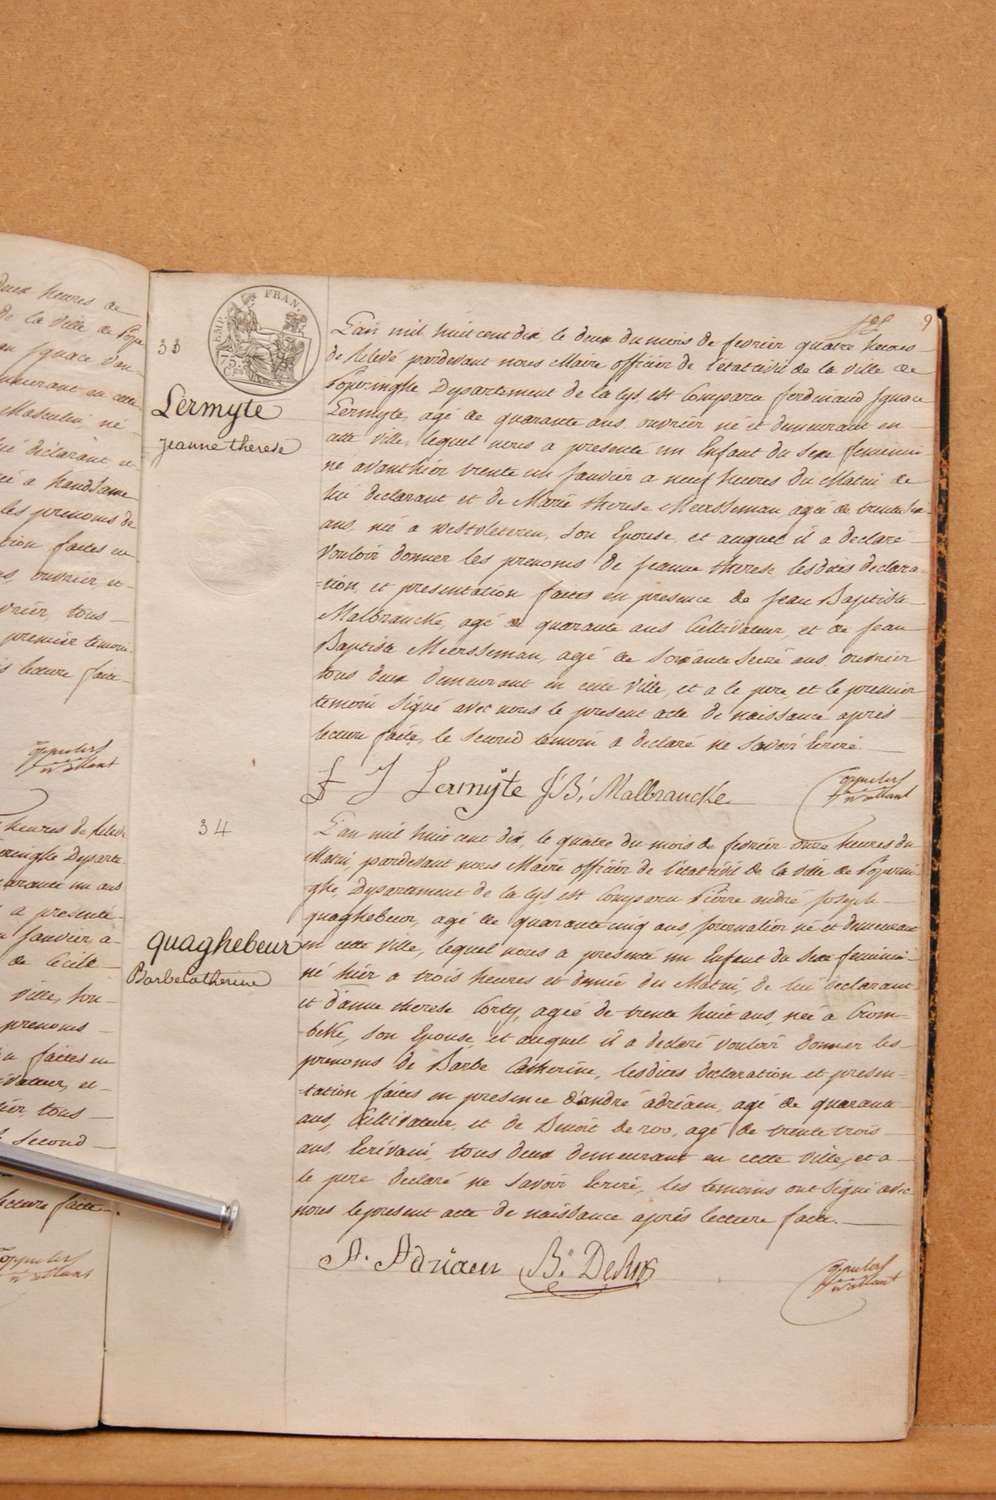 deux heures de
de la ville de Pope
an Ignace Van
demeurant en cette
Masculin né
lui déclarant et
née a handsame
les prenoms de
tion faites en
ans, ouvrier et
ouvrier, tous
premier temoin
s lecture faite
heures de Relevé
eringhe Departe
quarante un ans
a presenté
Janvier, a
de Cécile
ville, son
prenoms
faites en
cultivateur, et
ier tous
second
lecture faite.
9
EMP. FRAN.
33
Lermyte
jeanne therese
L'an mil huit cent dix, le deux du mois de fevrier quatre heures
de Relevé pardevant nous Maire officier de l'etat civil de la ville de
Poperinghe Departement de la lys est Comparu ferdinand Ignace
Lermyte, agé de quarante ans, ouvrier né et demeurant en
cette ville, lequel nous a presenté un Enfant du Sexe feminin
né avanthier trente un Janvier a neuf heures du Matin de
lui declarant et de Marie therese Meersseman agée de trente
ans née a westvleteren, son Epouse, et auquel il a declaré
vouloir donner les prenoms de jeanne therese lesdites declara-
=tion, et presentation faites en presence de Jean Baptiste
Malbrancke, agé de quarante ans Cultivateur, et de Jean
Baptiste Meersseman, agé de soixante seize ans ouvrier
tous deux demeurant en cette ville, et a le pere, et le premier
temoin signé avec nous le present acte de naissance après
lecture faite, le second temoin a declaré ne savoir Ecrire.
f J Lermyte J: B: Malbrancke
34
quaghebeur
Barbe Catherine
L'an mil huit cent dix, le quatre du mois de fevrier onze heures du
Matin pardevant nous Maire officier de l'etat civil de la ville de Poperin-
ghe, Departement de la lys est Comparu Pierre andré Joseph
quaghebeur, agé de quarante cinq ans, journalier né et demeurant
en cette ville, lequel nous a presenté un Enfant du Sexe feminin
né hier a trois heures et demie du Matin, de lui declarant
et d'anne therese Corty, agée de trente huit ans, née a Crom-
beke, son Epouse, et auquel il a declaré vouloir donner les
prenoms de Barbe Catherine, lesdites declaration et presen-
-tation faites en presence d'andré adriaen, agé de quarante
ans, Cultivateur, et de Benoit de roo, agé de trente trois
ans, Ecrivain, tous deux demeurant en cette ville, et a
le pere declaré ne savoir Ecrire, les temoins ont signé avec
nous le present acte de naissance après lecture faite.
A. Adriaen B: DeRoo